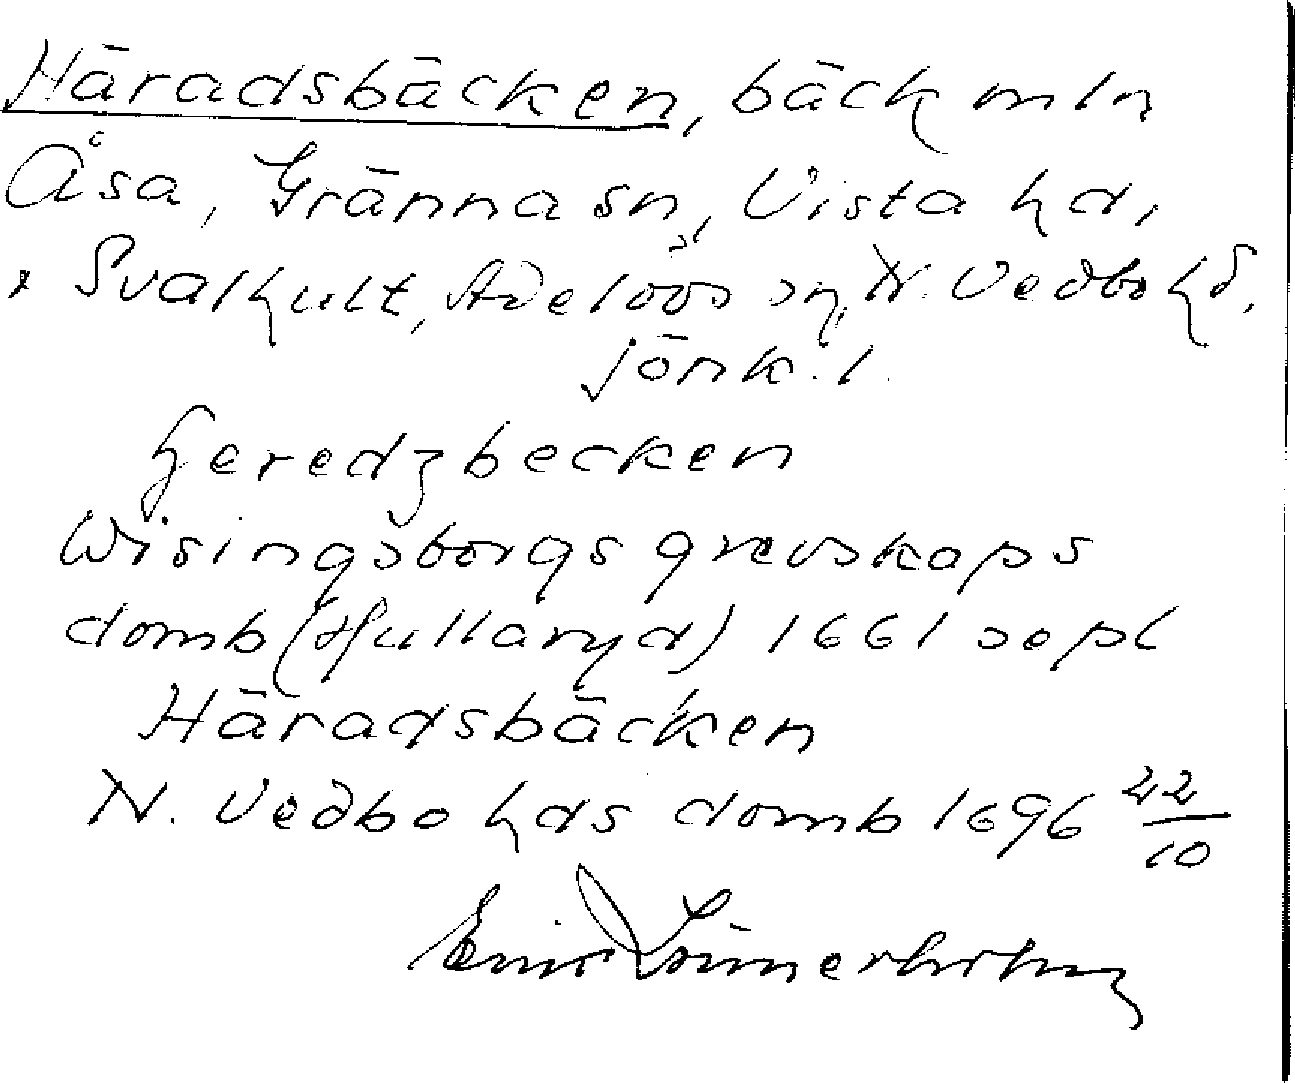 Häradsbäcken, bäck mln
Åsa, Gränna sn, Vista hd,
Svalhult, Adelövs sn, N. Vedbo hd,
Jönk. l.
heredzbecken
Wisingsborgs grevskaps
domb (Hullaryd) 1661 sept
Häradsbäcken
N. Vedbo hds domb 1696 22/10